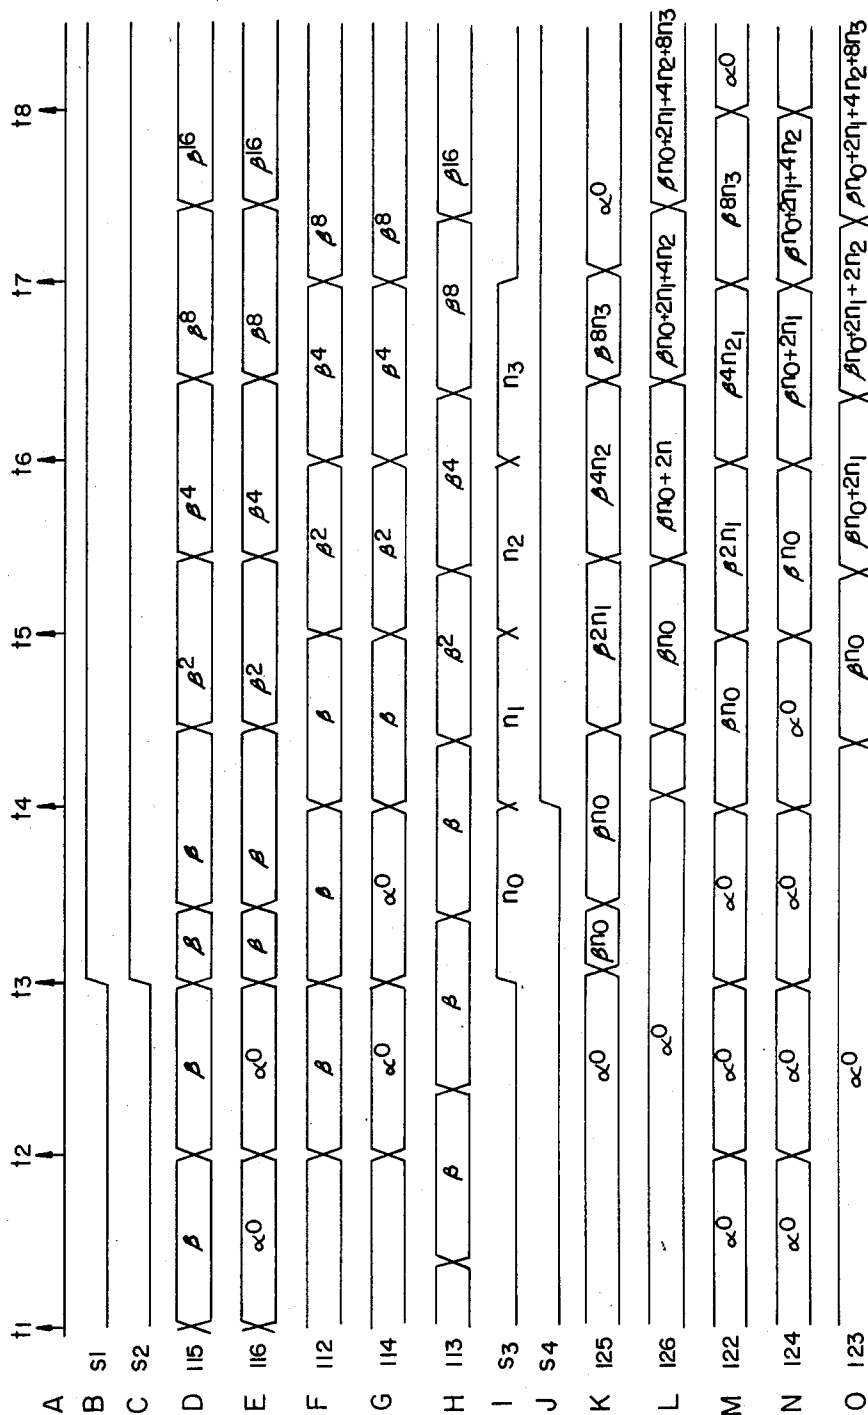 t1 t2 t3 t4 t5 t6 t7 t8
A
B S1
C S2
D 115 β β β β β² β⁴ β⁸ β¹⁶
E 116 α⁰ α⁰ β β β² β⁴ β⁸ β¹⁶
F 112 β β β β² β⁴ β⁸
G 114 α⁰ α⁰ β β² β⁴ β⁸
H 113 β β β β² β⁴ β⁸ β¹⁶
I S3 n₀ n₁ n₂ n₃
J S4
K 125 α⁰ βn₀ βn₀ β2n₁ β4n₂ β8n₃ α⁰
L 126 α⁰ βn₀ βn₀+2n βn₀+2n₁+4n₂ βn₀+2n₁+4n₂+8n₃
M 122 α⁰ α⁰ α⁰ βn₀ β2n₁ β4n₂₁ β8n₃ α⁰
N 124 α⁰ α⁰ α⁰ α⁰ βn₀ βn₀+2n₁ βn₀+2n₁+4n₂
O 123 α⁰ βn₀ βn₀+2n₁ βn₀+2n₁+2n₂ βn₀+2n₁+4n₂+8n₃